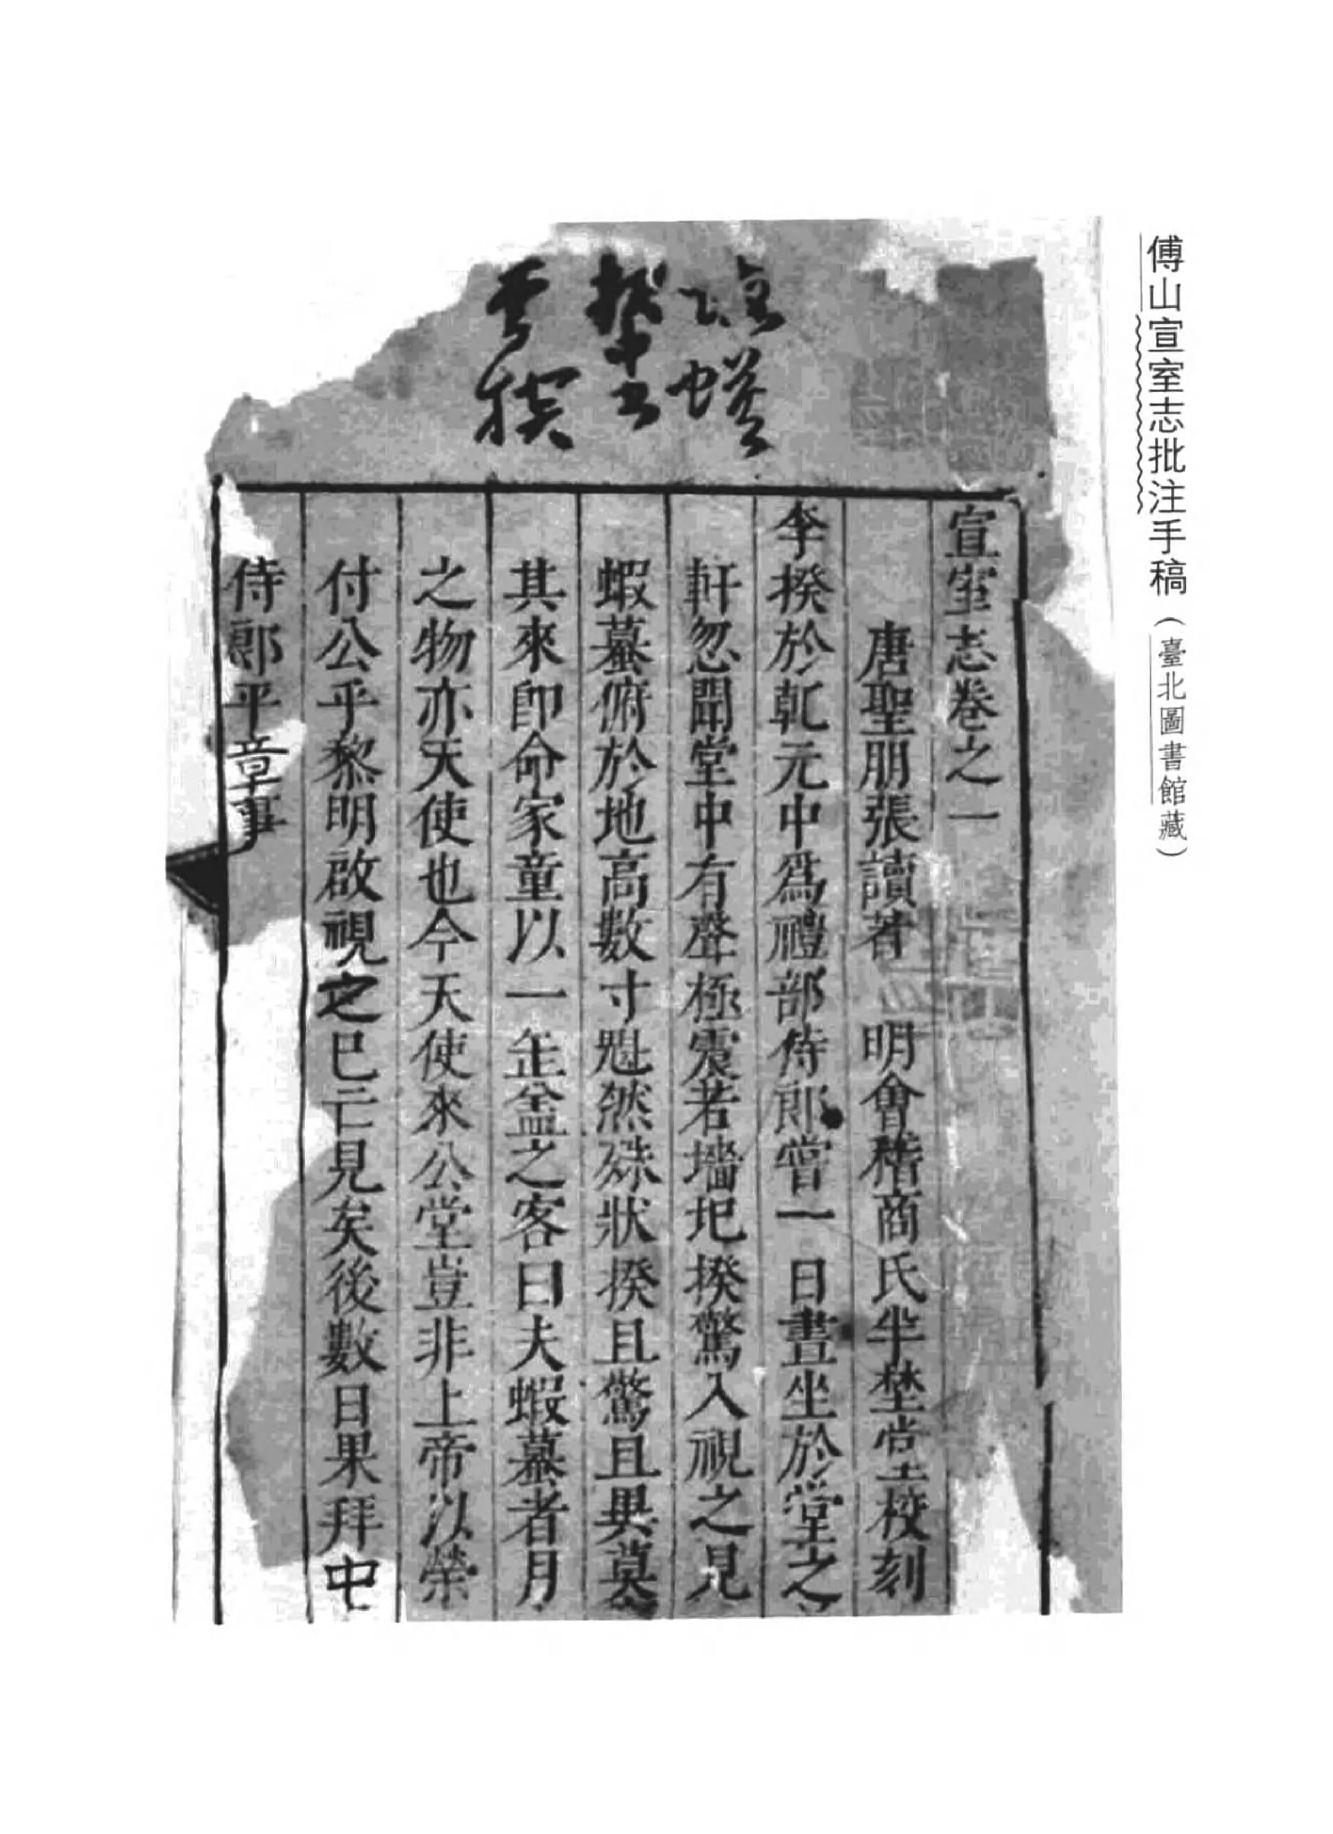 傅山宣室志批注手稿（臺北圖書館藏）
宣室志卷之一
唐聖朋張讀著　明會稽商氏半埜堂校刻
李揆於乾元中為禮部侍郎嘗一日晝坐於堂之
軒忽聞堂中有聲極震若墻圮揆驚入視之見
蝦蟇俯於地高數寸魁然殊狀揆且驚且異莫
其來即命家童以一缶盆之客曰夫蝦蟇者月
之物亦天使也今天使來公堂豈非上帝以榮
付公乎黎明啟視之已亡見矣後數日果拜中
侍郎平章事